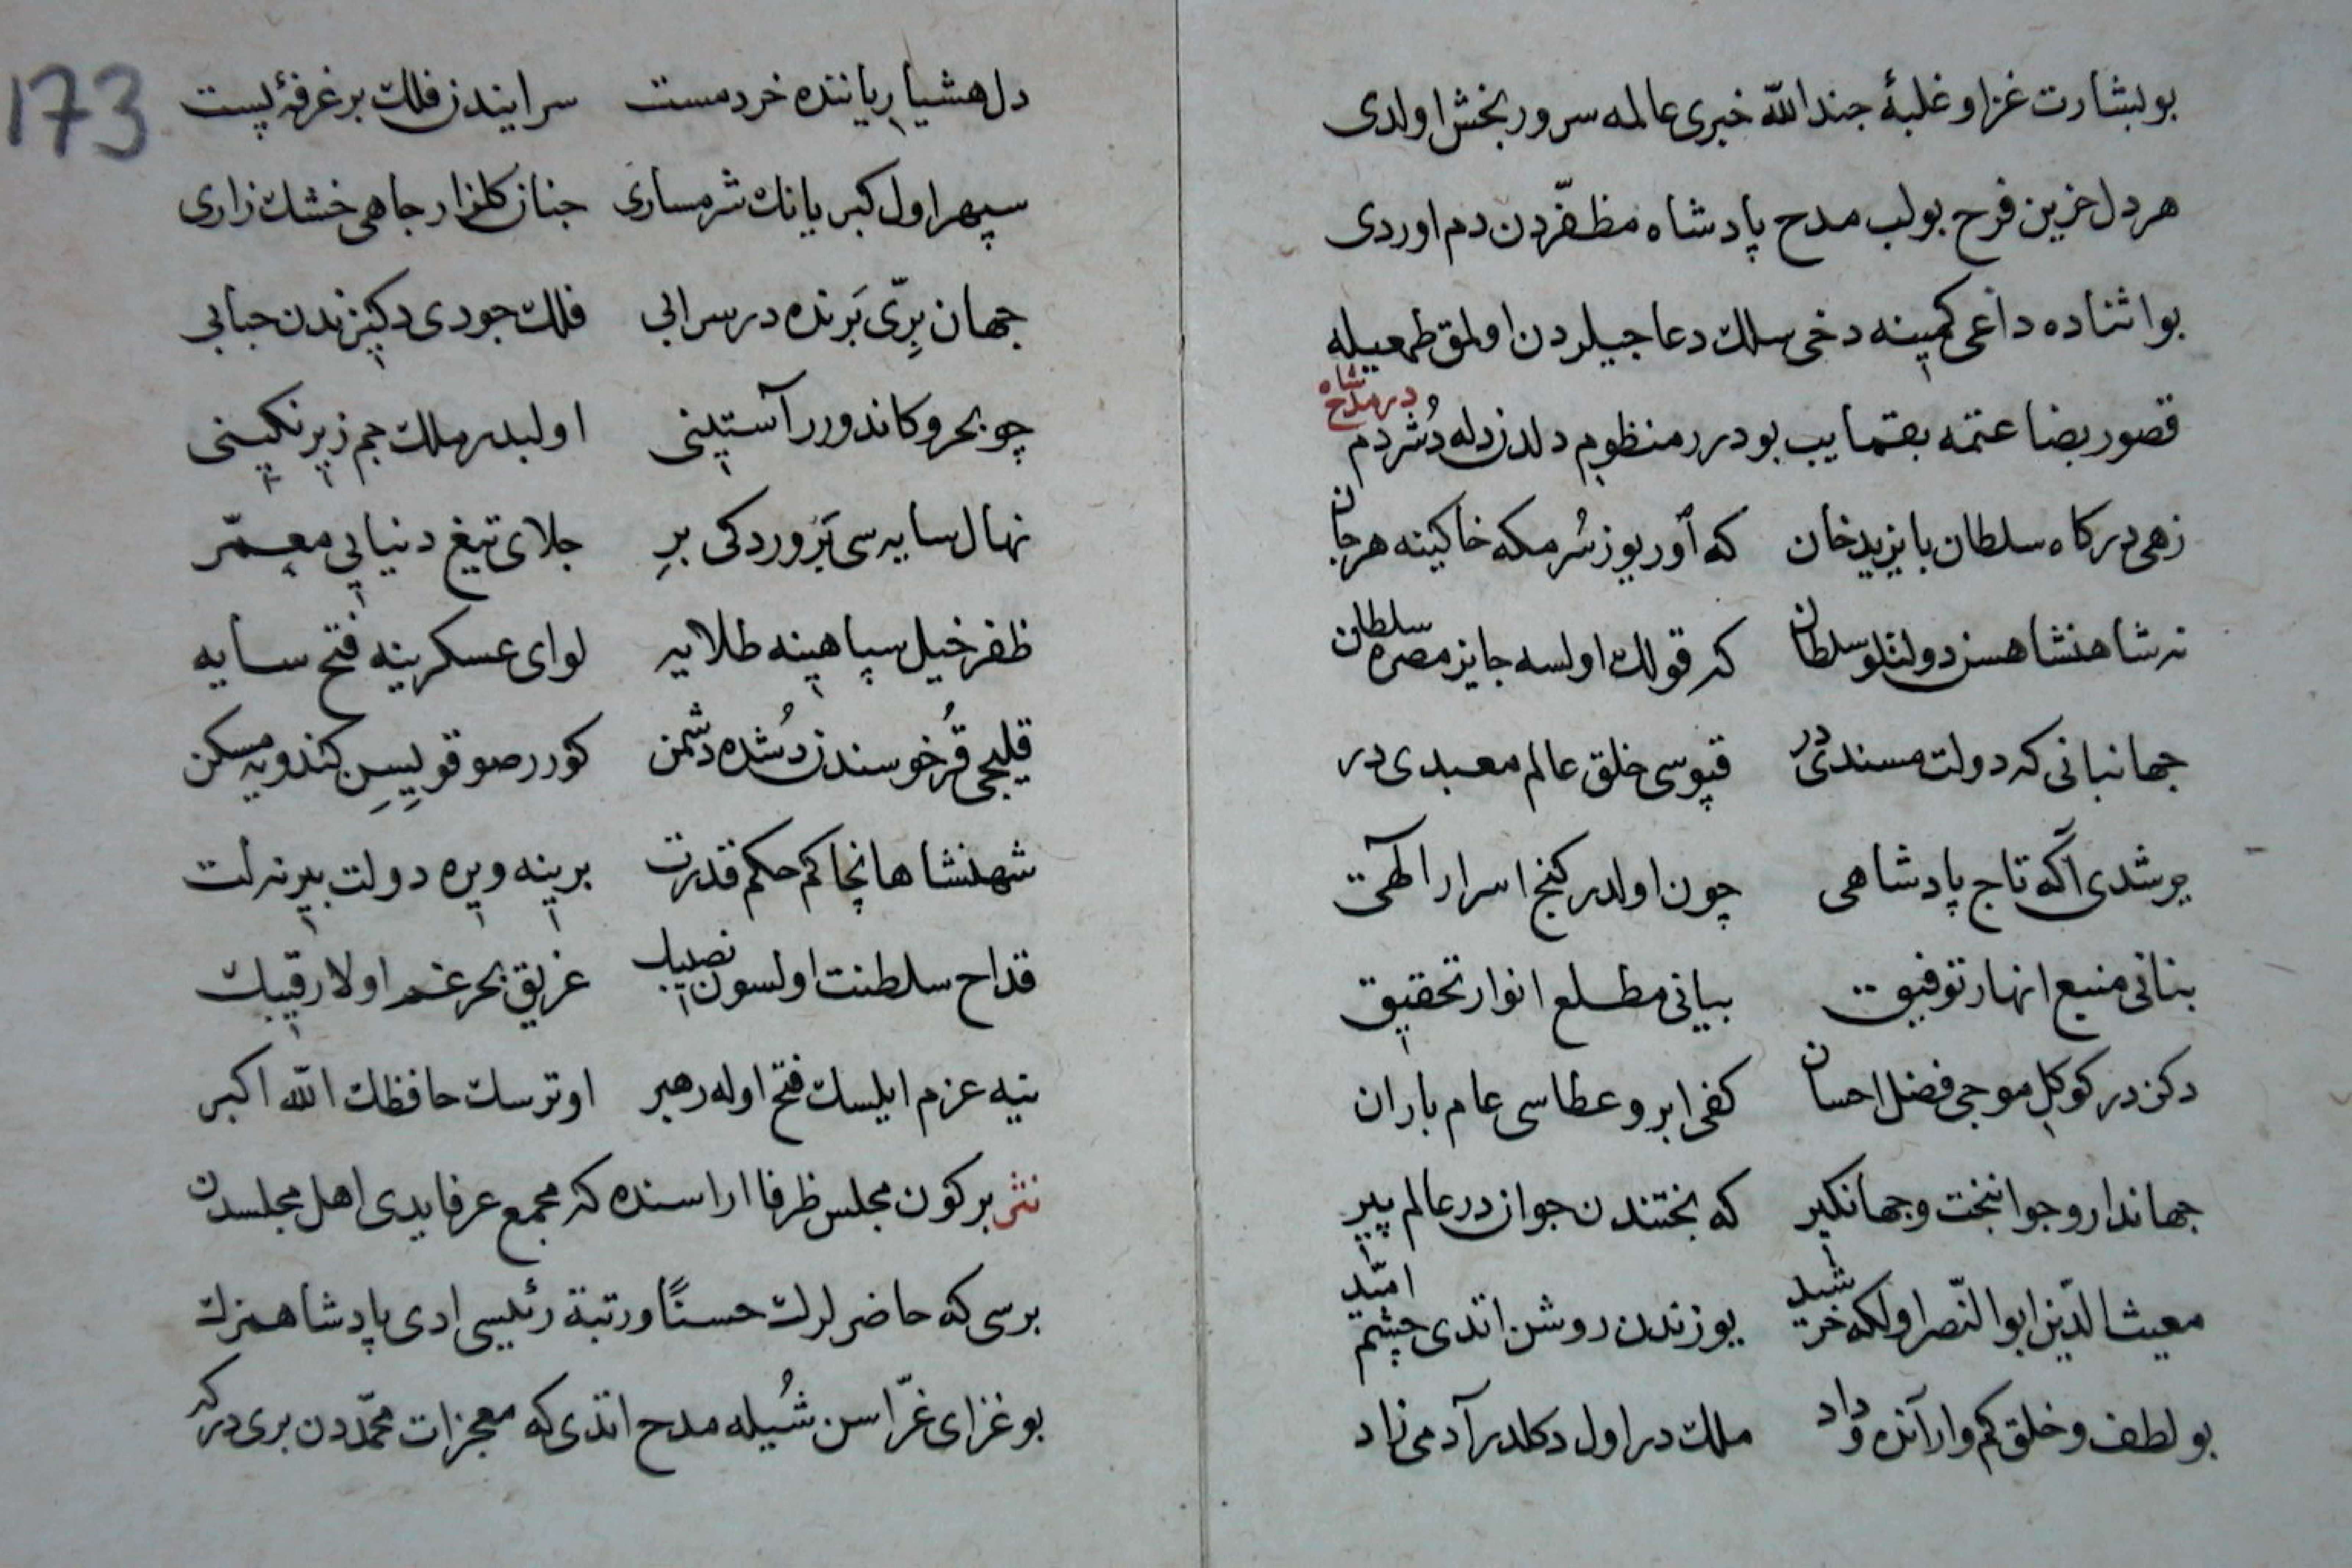 بو بشارت غزا و غلبهٔ جند الله خبری عالمه سرور بخش اولدی
هر دل حزین فرح بولب مدح پادشاه مظفّردن دم اوردی
بو اثناده داعی کمینه دخی سلك دعاجیلردن اولمق طمعیله
در مدح شاه
قصور بضاعتمه بقمایب بو درر منظومم دلدن دله دُشردم
زهی درکاه سلطان بایزید خان که آور یوز سُرمکه خاکینه هر جان
نه شاهنشاهسن دولتلو سلطان که قولك اولسه جایز مصره سلطان
جهانبانی که دولت مسندی در قپوسی خلق عالم معبدی در
یرشدی اکه تاج پادشاهی چون اولدر کنج اسرار الهی
بنانی منبع انهار توفیق بیانی مطلع انوار تحقیق
دکزدر کوکل موجی فضل احسان کفی ابر و عطاسی عام باران
جهاندار و جوانبخت و جهانکیر که بختندن جواندر عالم پیر
مغیث الدّین ابو النّصر اولکه خرشید یوزندن روشن اتدی چشم امّید
بو لطف و خلق کم وار آنده و داد ملك در اول دکلدر آدمی زاد
173
دل هشیار یاننده خرد مست سرایندن فلك بر غرفهٔ پست
سپهر اول کبریانك شرمساری جنان کلزار جاهی خشك زاری
جهان برّی بَرنده در سرابی فلك جودی دکیزندن حبابی
چو بحر و کاندورر آستینی اولبدر ملك جم زیر نکینی
نهال سایه سی پَروردکی بر جلای تیغ دنیایی معمّر
ظفر خیل سپاهینه طلایه لوای عسکرینه فتح سایه
قلیجی قُرخوسندن دُشده دشمن کورر صو قویسن کندویه مسکن
شهنشاها نچاکم حکم قدرت برینه ویره دولت بیرنه لت
قداح سلطنت اولسون نصیبك غریق بحر غم اولا رقیبك
نیه عزم ایلسك فتح اوله رهبر اوترسك حافظك الله اکبر
نثر بر کون مجلس ظرفا اراسنده که مجمع عرفایدی اهل مجلسدن
برسی که حاضرلرك حسنًا و رتبة رئیسی ادی پادشاهمزك
بو غزای غرّاسن شُیله مدح اتدی که معجزات محمّددن بری در که